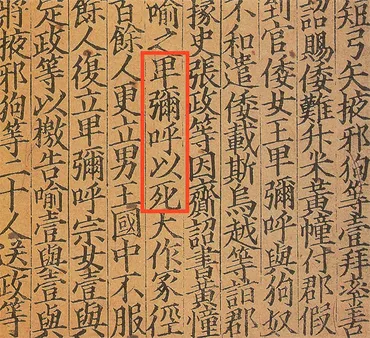 短弓矢掖邪狗等壹拜率善
詔賜倭難升米黃幢付郡假
到官倭女王卑彌呼與狗奴
不和遣倭載斯烏越等詣郡
掾史張政等因齎詔書黃幢
喻之卑彌呼以死大作冢徑
百餘人更立男王國中不服
餘人復立卑彌呼宗女壹與
定政等以檄告喻壹與壹與
將掖邪狗等二十人送政等